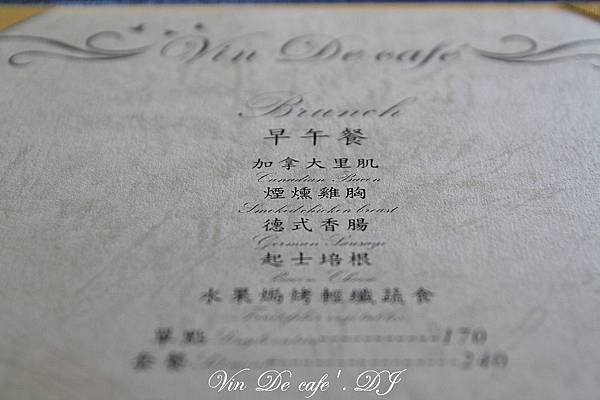 Vin De café
Brunch
早午餐
加拿大里肌
Canadian Bacon
煙燻雞胸
Smoked chicken breast
德式香腸
German Sausage
起士培根
水果焗烤輕纖蔬食
單點 170
套餐 240
Vin De cafe'. DJ